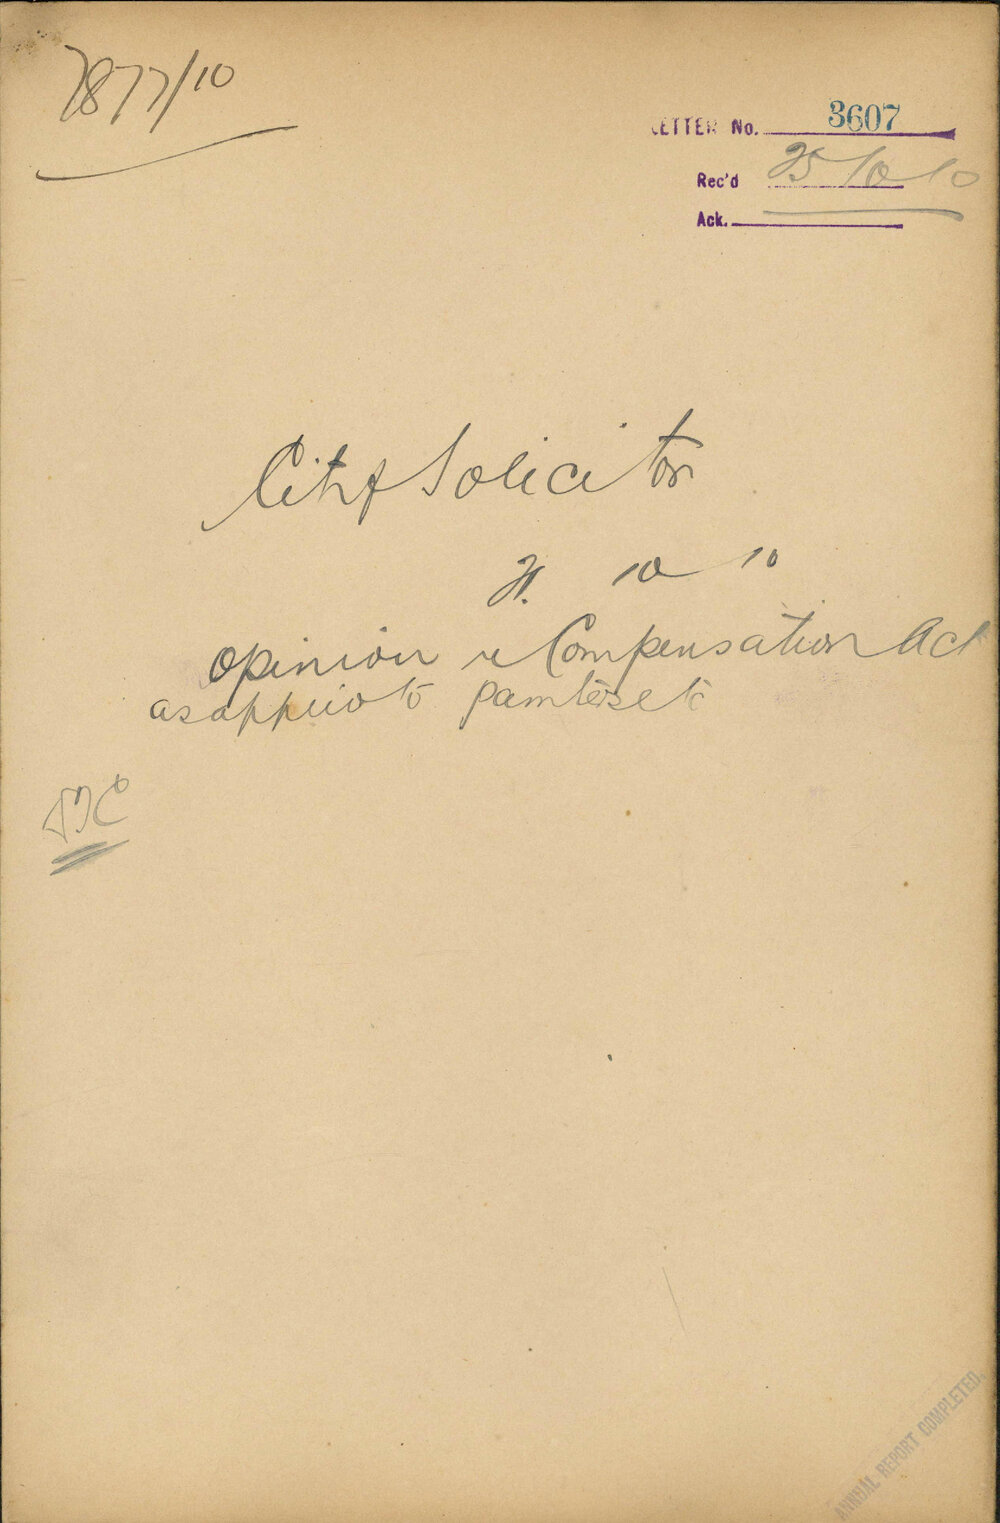 7877/10
LETTER No. 3607
Rec'd 25 10 10
Ack.
City Solicitor
21. 10 10
Opinion re Compensation Act
as applied to painters etc
ANNUAL REPORT COMPLETED.